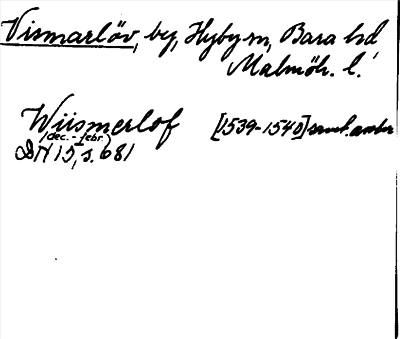 Vismarlöv, by, Hyby sn, Bara hd,
Malmöh. l.
Wiismerlof [1539-1540] samt. avskr
(dec. - febr.)
DN 15, s. 681